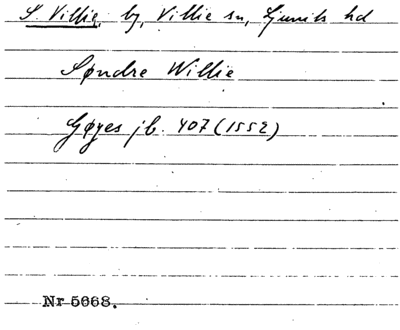 S. Villie, by, Villie sn, Ljunits hd
Søndre Willie
Gøyes jb. 407 (1552)
Nr 5668.